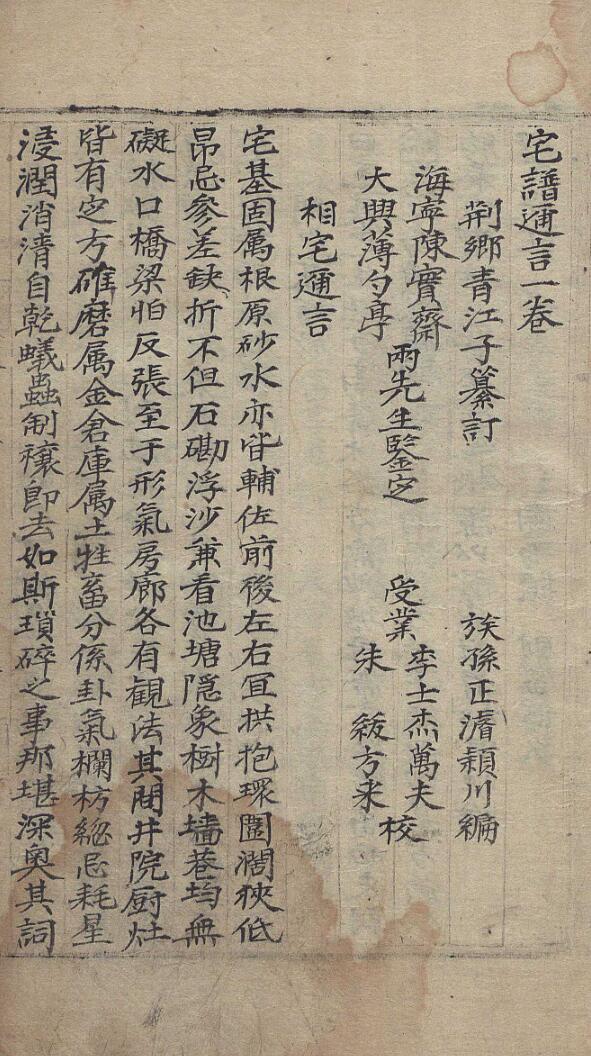 宅譜邇言一卷
荆鄉青江子纂訂 族孫正濬穎川編
海寧陳實齋
大興薄勺亭
兩先生鑒定
受業
李士杰萬夫
朱紱方来
校
相宅邇言
宅基固属根原砂水亦皆輔佐前後左右宜拱抱環圍濶狹低
昂忌參差缺折不但石磡浮沙兼看池塘隐象樹木墻巷均無
礙水口橋梁怕反張至于形氣房廊各有観法其間井院厨灶
皆有定方碓磨属金倉庫属土牲畜分係卦氣欄枋總忌耗星
浸潤消清自乾蟻蟲制穰卽去如斯瑣碎之事那堪深奥其詞